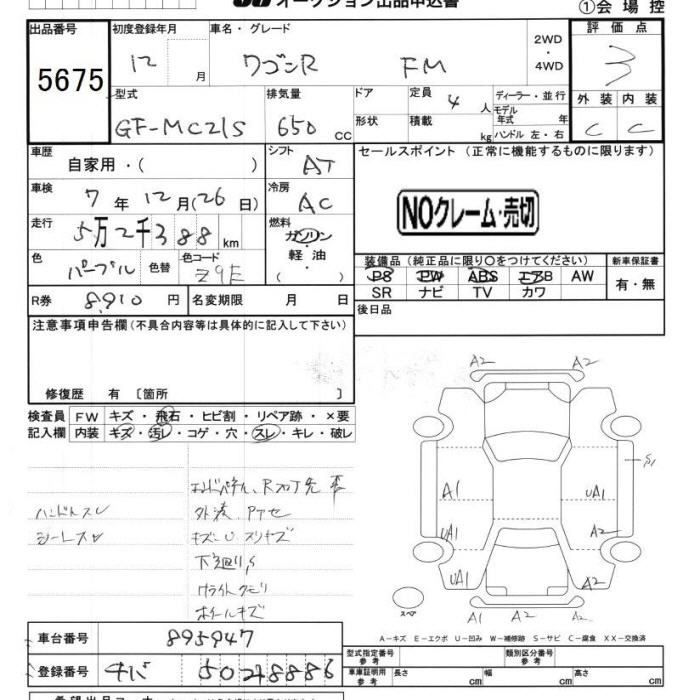 オークション出品申込書
①会場控
出品番号 5675
初度登録年月 12 月
車名・グレード ワゴンR FM
2WD・4WD
評価点 3
型式 GF-MC21S
排気量 650 cc
ドア 形状
定員 4 人
積載 kg
ディーラー・並行
モデル年式 年
ハンドル 左・右
外装 内装
C C
車歴 自家用・( )
シフト AT
セールスポイント (正常に機能するものに限ります)
車検 7年12月(26日)
冷房 AC
NOクレーム・売切
走行 5万2千388km
燃料 ガソリン・軽油・( )
色 パープル 色替
色コード Z9E
装備品 (純正品に限り○をつけてください)
新車保証書
PS PW ABS エアB AW
有・無
SR ナビ TV カワ
R券 8,910 円
名変期限 月 日
後日品
注意事項申告欄(不具合内容等は具体的に記入して下さい)
修復歴 有 〔箇所 〕
検査員 FW キズ・飛石・ヒビ割・リペア跡・×要
記入欄 内装 キズ・汚レ・コゲ・穴・スレ・キレ・破レ
ハンドルスレ
シートスレ
外装
キズ
下廻りS
ライトクモリ
ホイールキズ
A2 A2
S1
A1 UA1
UA1 A2
UA1 A2
スペア
A1 A2 A2
A-キズ E-エクボ U-凹み W-補修跡 S-サビ C-腐食 XX-交換済
車台番号 895947
型式指定番号 参考
類別区分番号 参考
登録番号 チバ 502 8886
車庫証明用 参考 長さ cm 幅 cm 高さ cm
希望出品コーナー